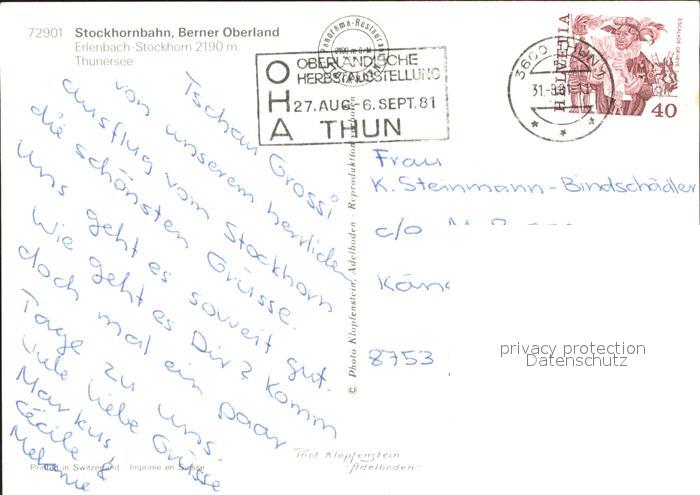 72901 Stockhornbahn, Berner Oberland
Erlenbach-Stockhorn 2190 m
Thunersee
Panorama-Restaurant
OHA
OBERLÄNDISCHE
HERBSTAUSSTELLUNG
27. AUG.-6. SEPT. 81
THUN
3600 THUN 1
31.-8.81
HELVETIA
ESCALADE GENÈVE
40
Tschau Grossi
von unserem herrlichen
Ausflug vom Stockhorn
die schönsten Grüsse.
Uns geht es soweit gut.
Wie geht es Dir? Komm
doch mal ein paar
Tage zu uns.
Viele liebe Grüsse
Markus
Cécile &
Melanie
© Photo Klopfenstein, Adelboden - Reproduktion verboten
Frau
K. Steinmann-Bindschädler
c/o M.
Käng
8753
privacy protection
Datenschutz
Phot Klopfenstein
Adelboden
Printed in Switzerland Imprimé en Suisse